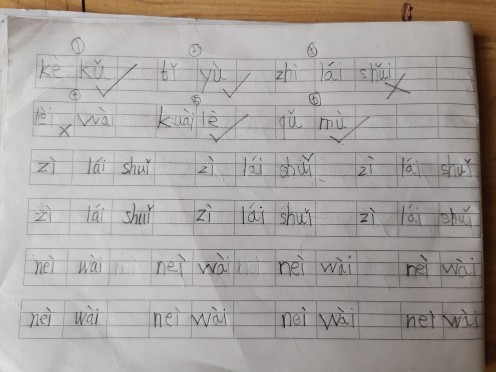 ① ② ③
kè kǔ tǐ yù zhì lái shuǐ
④ ⑤ ⑥
lèi wài kuài lè gǔ mù
zì lái shuǐ zì lái shuǐ zì lái shuǐ
zì lái shuǐ zì lái shuǐ zì lái shuǐ
neì wài neì wài neì wài neì wài
neì wài neì wài neì wài neì wài